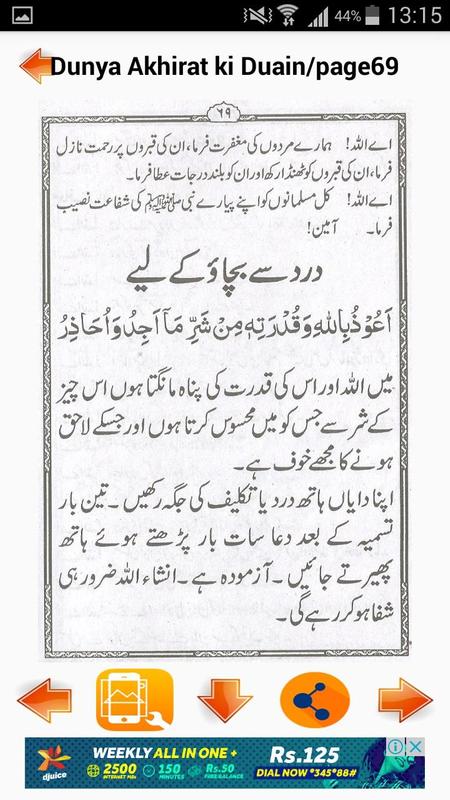 44% 13:15
Dunya Akhirat ki Duain/page69
٦٩
اے اللہ! ہمارے مردوں کی مغفرت فرما، ان کی قبروں پر رحمت نازل
فرما، ان کی قبروں کو ٹھنڈا رکھ اور ان کو بلند درجات عطا فرما۔
اے اللہ! کل مسلمانوں کو اپنے پیارے نبی ﷺ کی شفاعت نصیب
فرما۔ آمین!
درد سے بچاؤ کے لیے
اَعُوْذُ بِاللهِ وَقُدْرَتِهٖ مِنْ شَرِّ مَآ اَجِدُ وَاُحَاذِرُ
میں اللہ اور اس کی قدرت کی پناہ مانگتا ہوں اس چیز
کے شر سے جس کو میں محسوس کرتا ہوں اور جسکے لاحق
ہونے کا مجھے خوف ہے۔
اپنا دایاں ہاتھ درد یا تکلیف کی جگہ رکھیں۔ تین بار
تسمیہ کے بعد دعا سات بار پڑھتے ہوئے ہاتھ
پھیرتے جائیں۔ آزمودہ ہے۔ انشاء اللہ ضرور ہی
شفا ہو کر رہے گی۔
djuice
WEEKLY ALL IN ONE +
2500 INTERNET MBs 150 MINUTES Rs.50 FREE BALANCE
Rs.125
DIAL NOW *345*88#